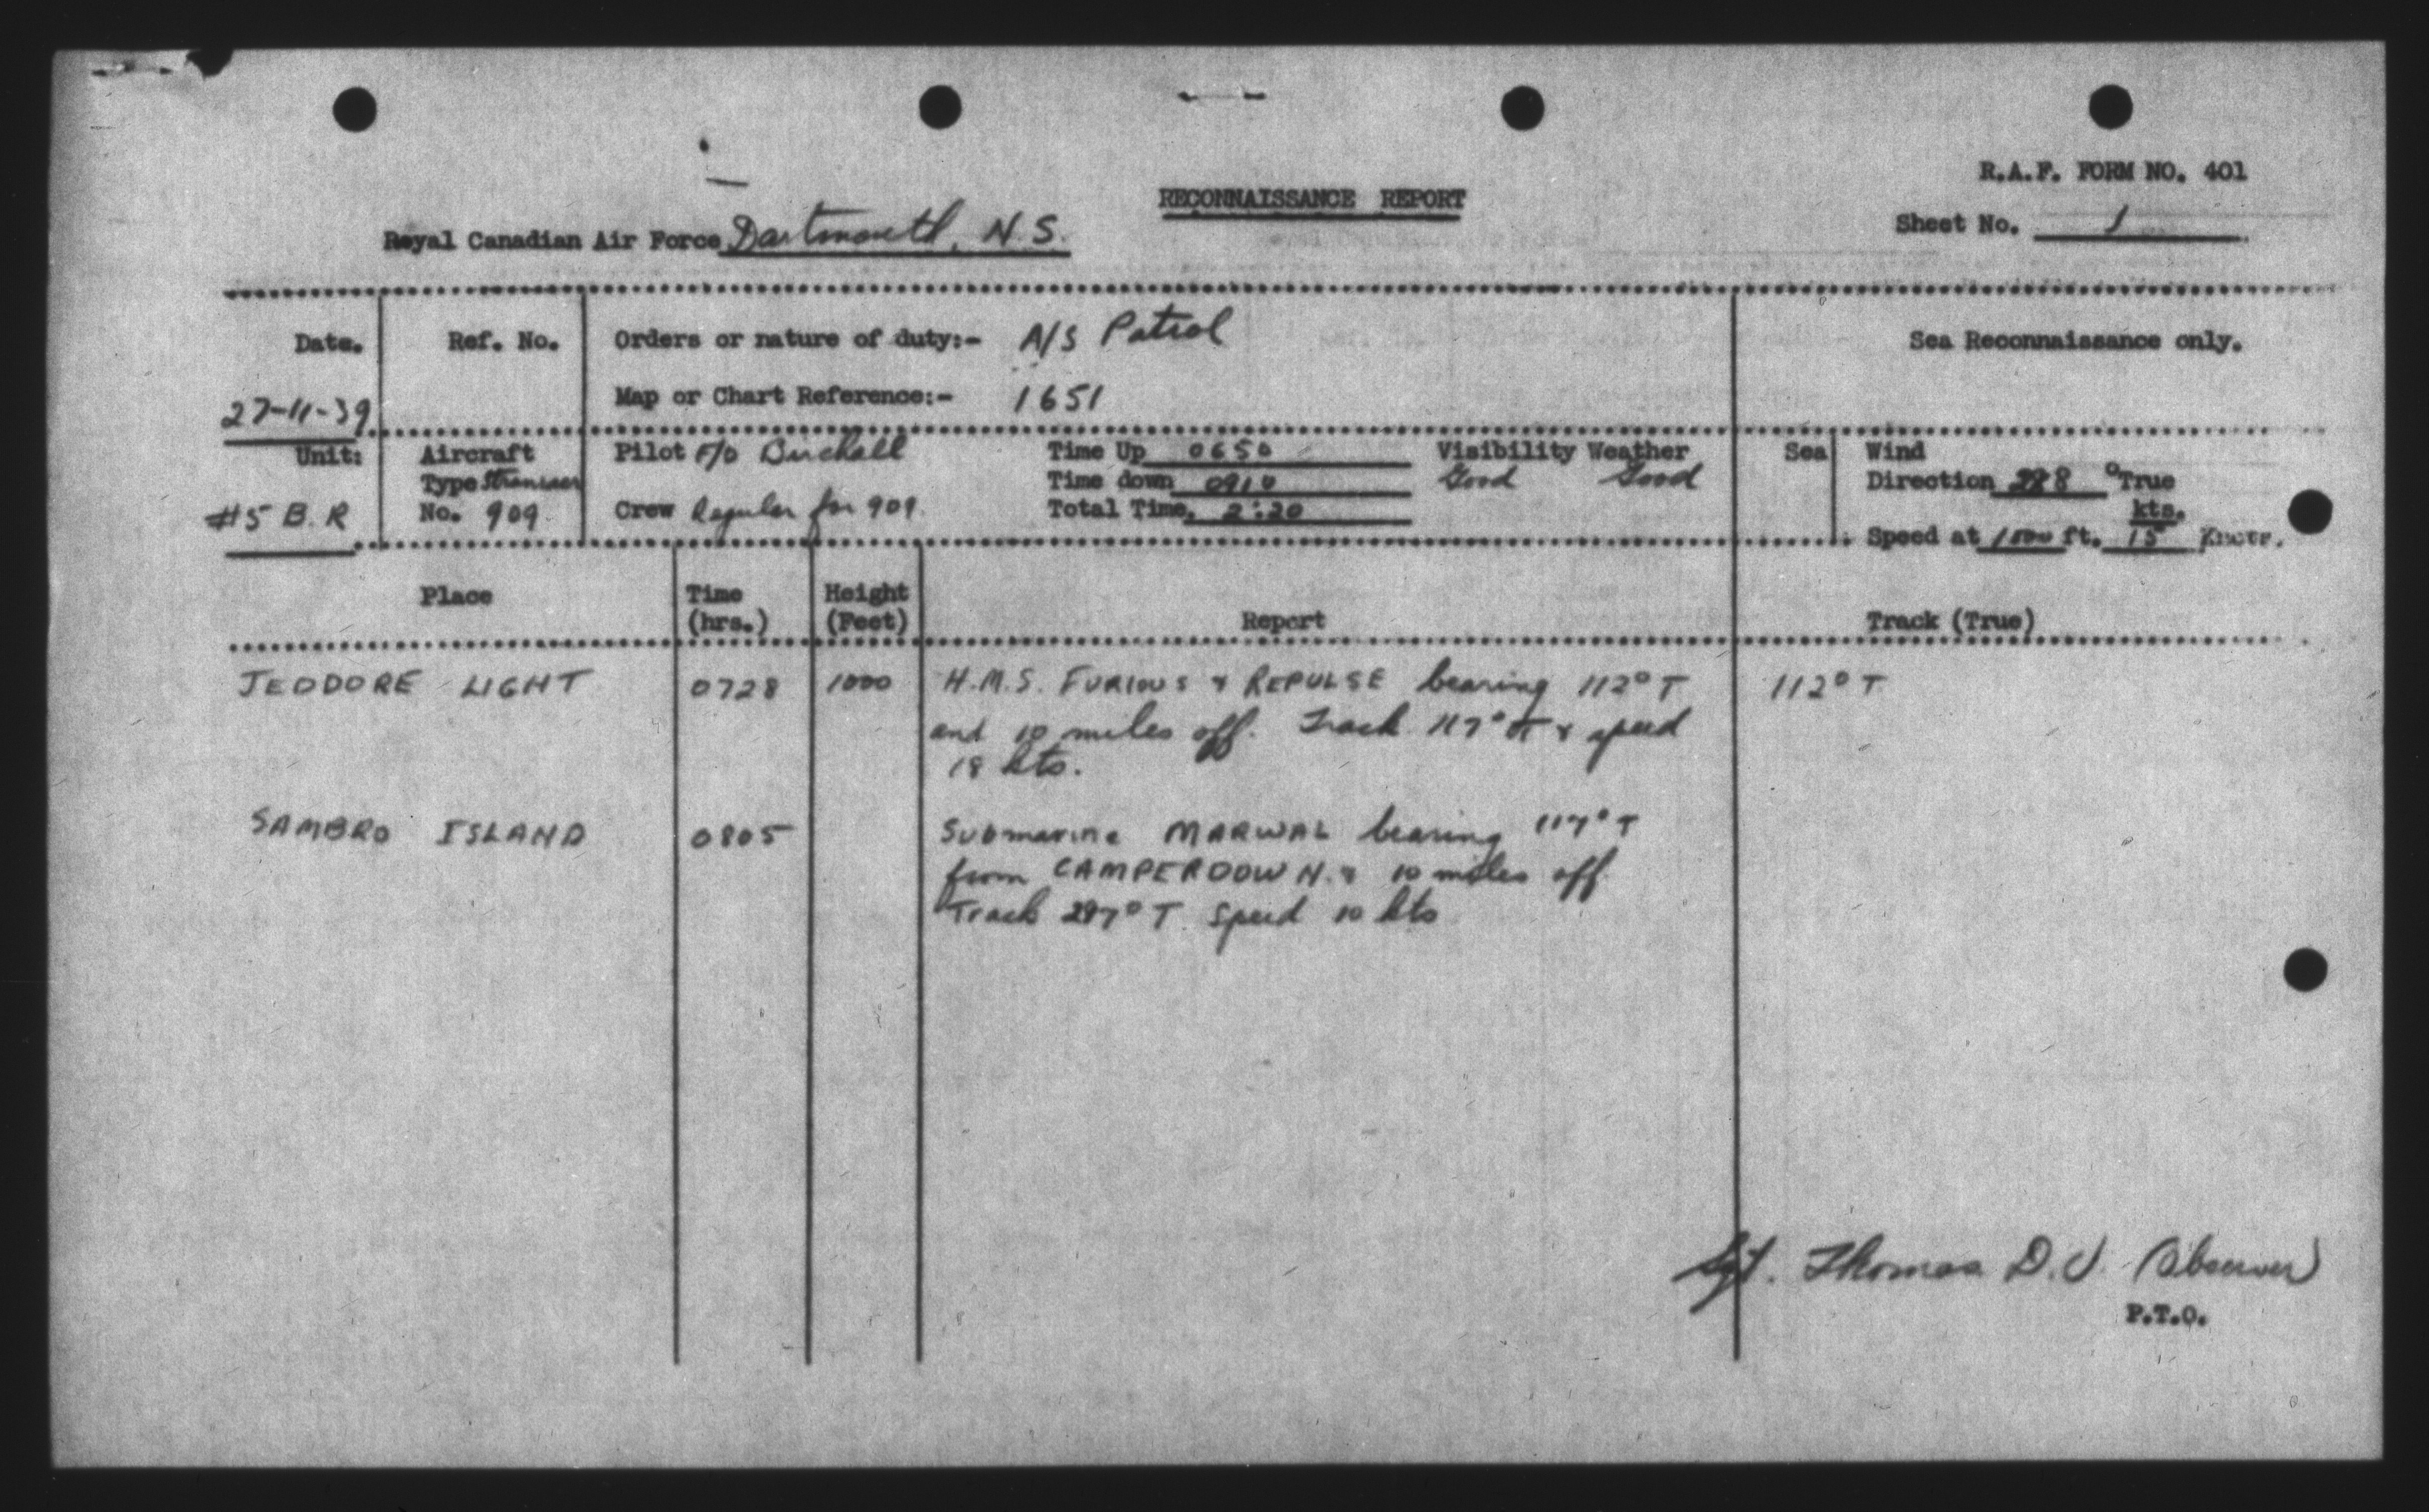 R.A.F. FORM NO. 401
RECONNAISSANCE REPORT
Sheet No. 1
Royal Canadian Air Force Dartmouth, N.S.
Date. Ref. No. Orders or nature of duty:- A/S Patrol Sea Reconnaissance only.
27-11-39 Map or Chart Reference:- 1651
Unit: Aircraft Pilot F/O Birchall Time Up 0650 Visibility Weather Sea Wind
Type Stranraer Time down 0910 Good Good Direction °True
#5 B.R No. 909 Crew Regular for 909. Total Time. 2:20 kts.
Speed at 1000 ft. 15 Knots.
Place Time Height
(hrs.) (Feet) Report Track (True)
JEODORE LIGHT 0728 1000 H.M.S. FURIOUS & REPULSE bearing 112° T 112° T
and 10 miles off. Track 117° T & speed
18 kts.
SAMBRO ISLAND 0805 Submarine MARWAL bearing 117° T
from CAMPERDOWN. & 10 miles off
Track 297° T. Speed 10 kts
Sgt. Thomas D.J. (Observer)
P.T.O.